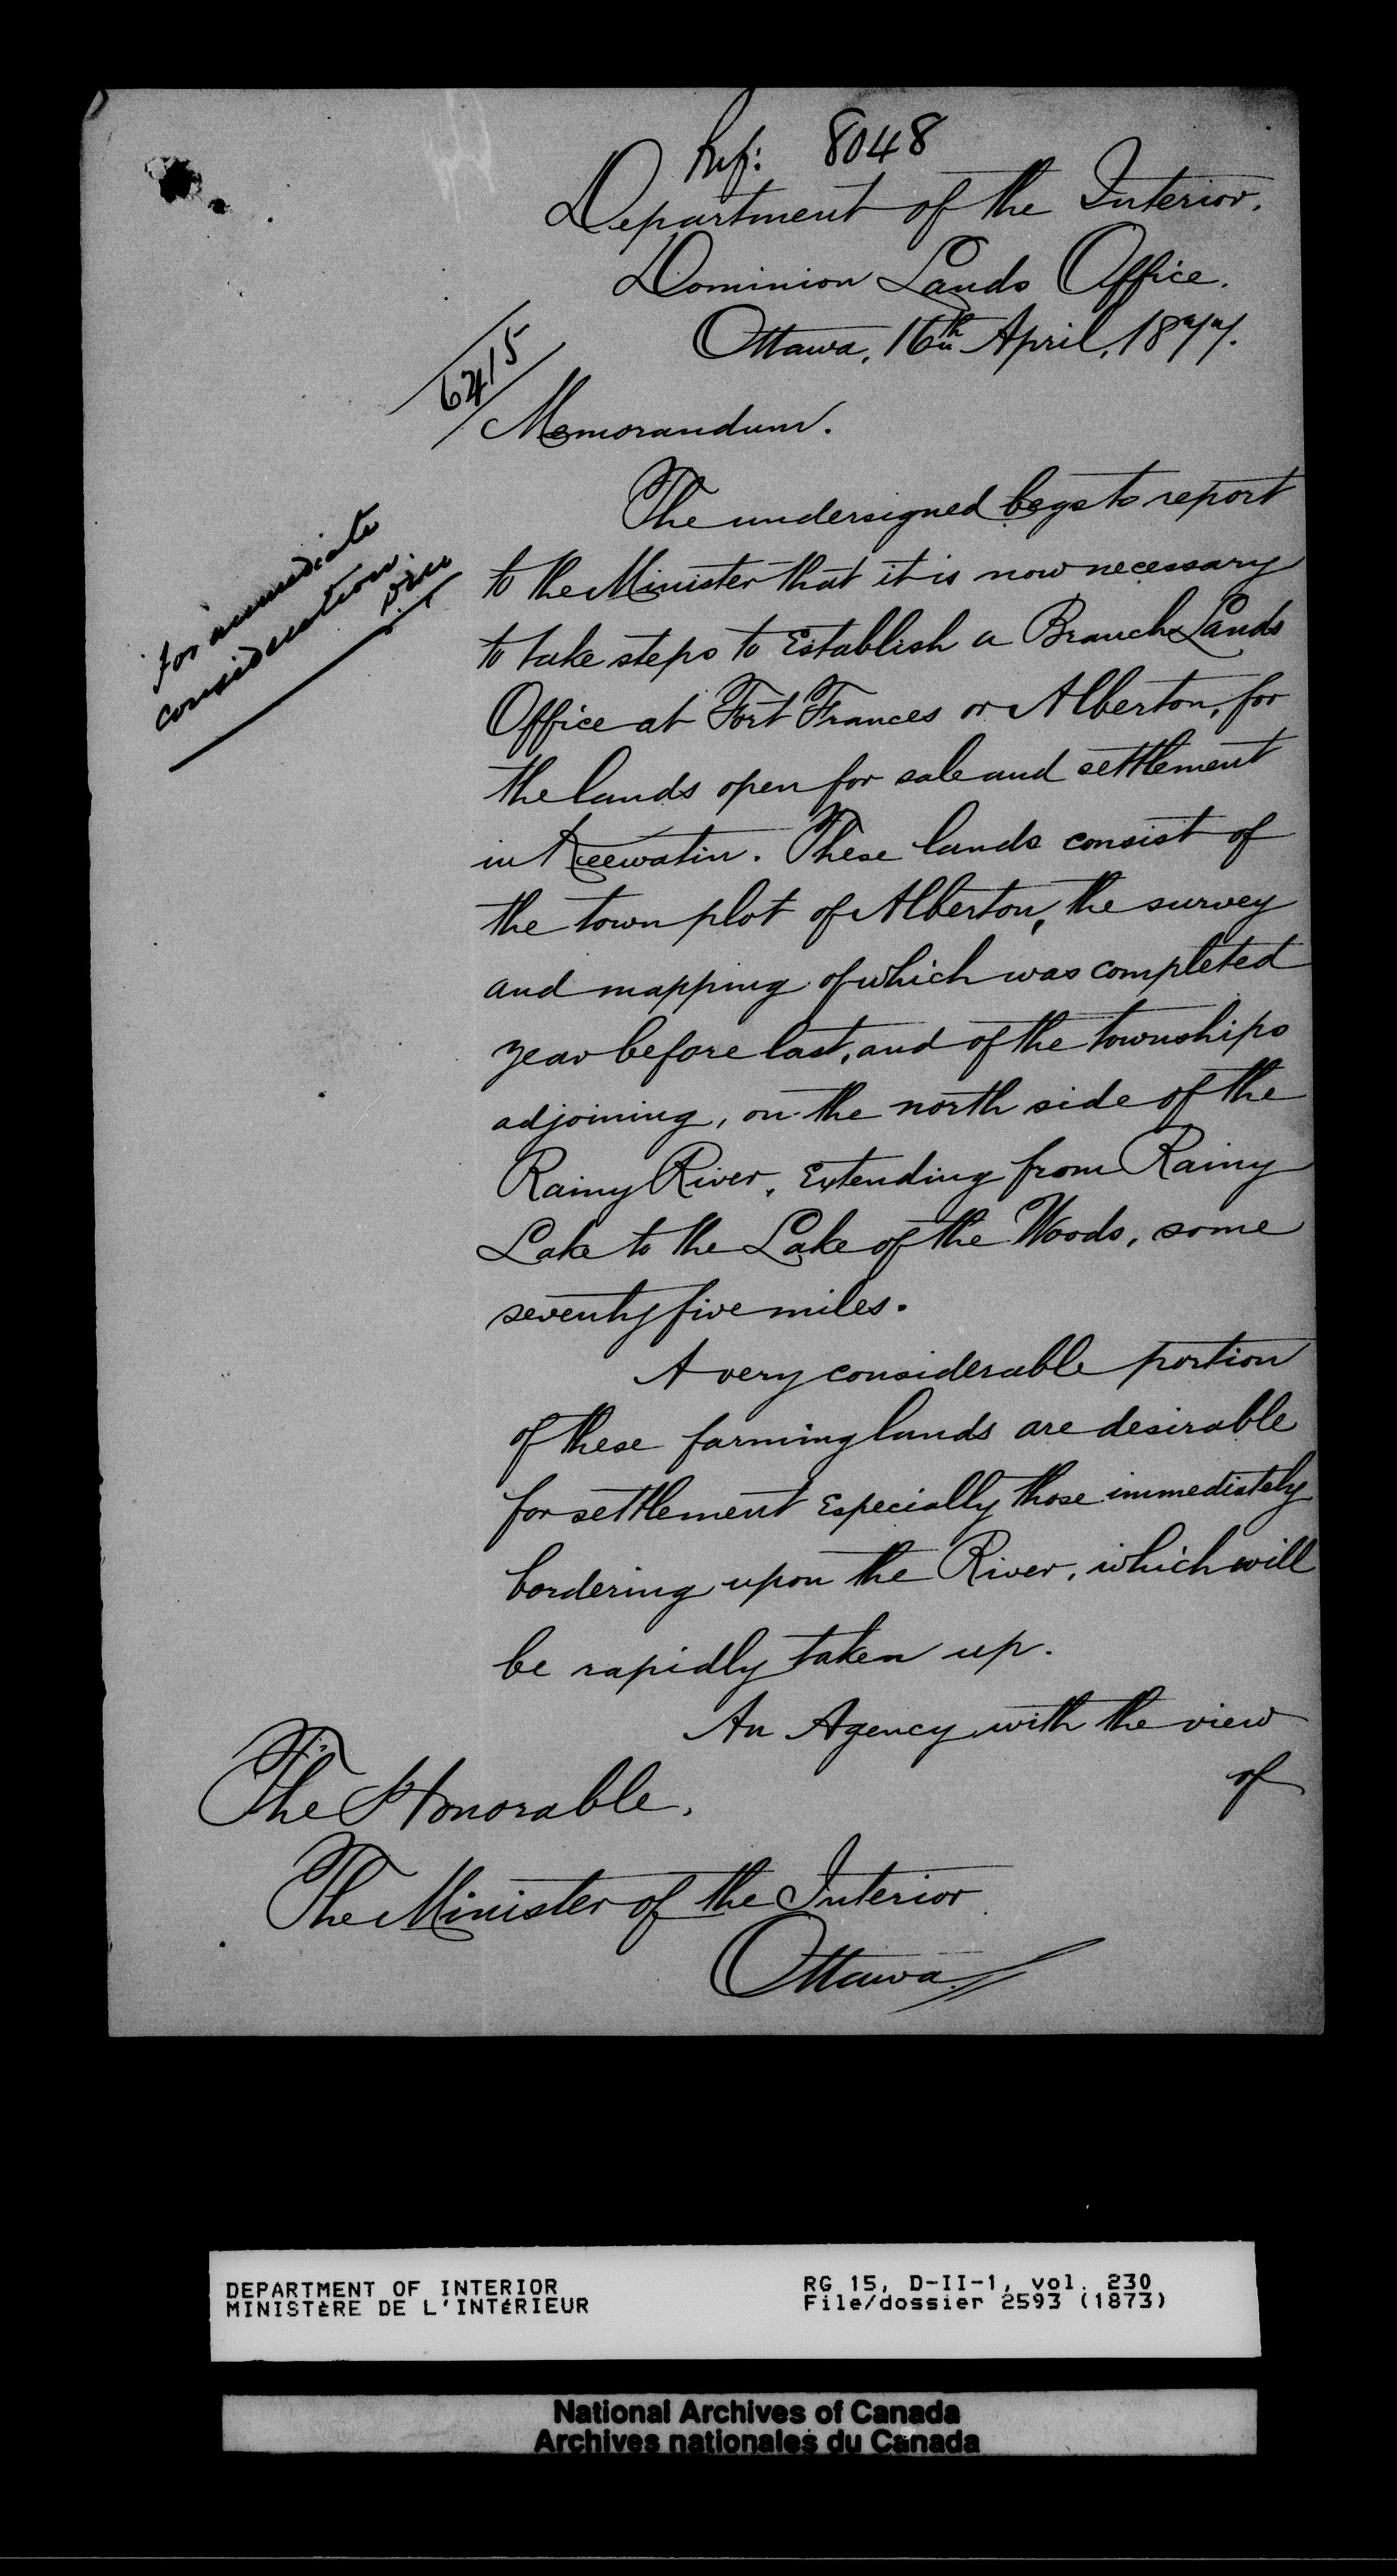 Ref: 8048
Department of the Interior.
Dominion Lands Office.
Ottawa, 16th April, 1877.
6415
Memorandum.
for immediate
consideration.
The undersigned begs to report
to the Minister that it is now necessary
to take steps to Establish a Branch Lands
Office at Fort Frances or Alberton, for
the lands open for sale and settlement
in Keewatin. These lands consist of
the town plot of Alberton, the survey
and mapping of which was completed
year before last, and of the townships
adjoining, on the north side of the
Rainy River, Extending from Rainy
Lake to the Lake of the Woods, some
seventy five miles.
A very considerable portion
of these farming lands are desirable
for settlement Especially those immediately
bordering upon the River, which will
be rapidly taken up.
An Agency with the view
of
The Honorable,
The Minister of the Interior
Ottawa.
DEPARTMENT OF INTERIOR
MINISTÈRE DE L'INTÉRIEUR
RG 15, D-II-1, vol. 230
File/dossier 2593 (1873)
National Archives of Canada
Archives nationales du Canada